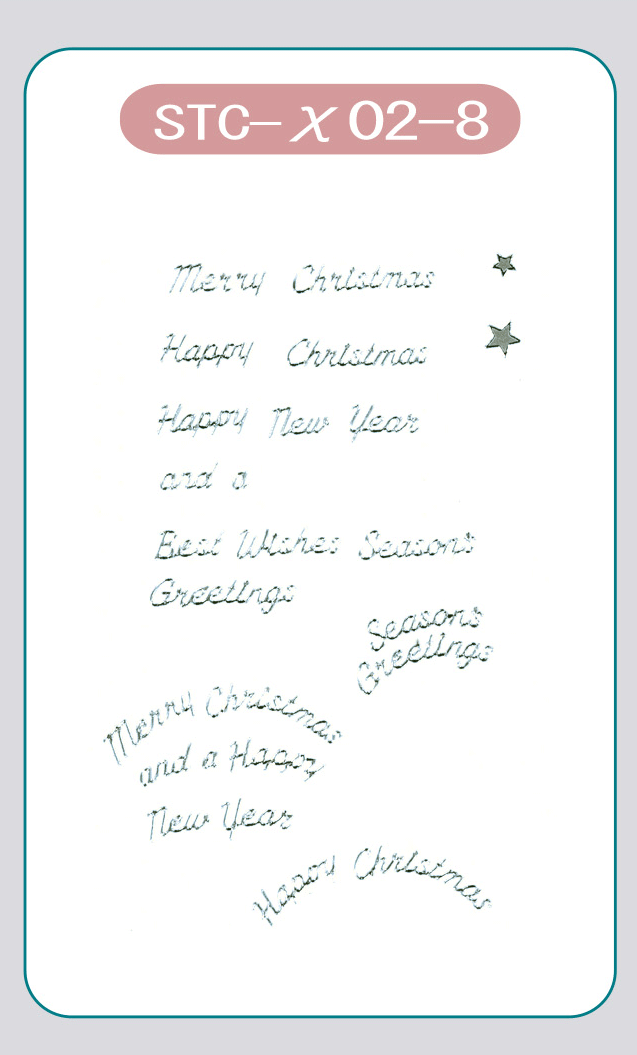 STC–X 02–8
Merry Christmas
Happy Christmas
Happy New Year
and a
Best Wishes Seasons
Greetings
Seasons
Greetings
Merry Christmas
and a Happy
New Year
Happy Christmas